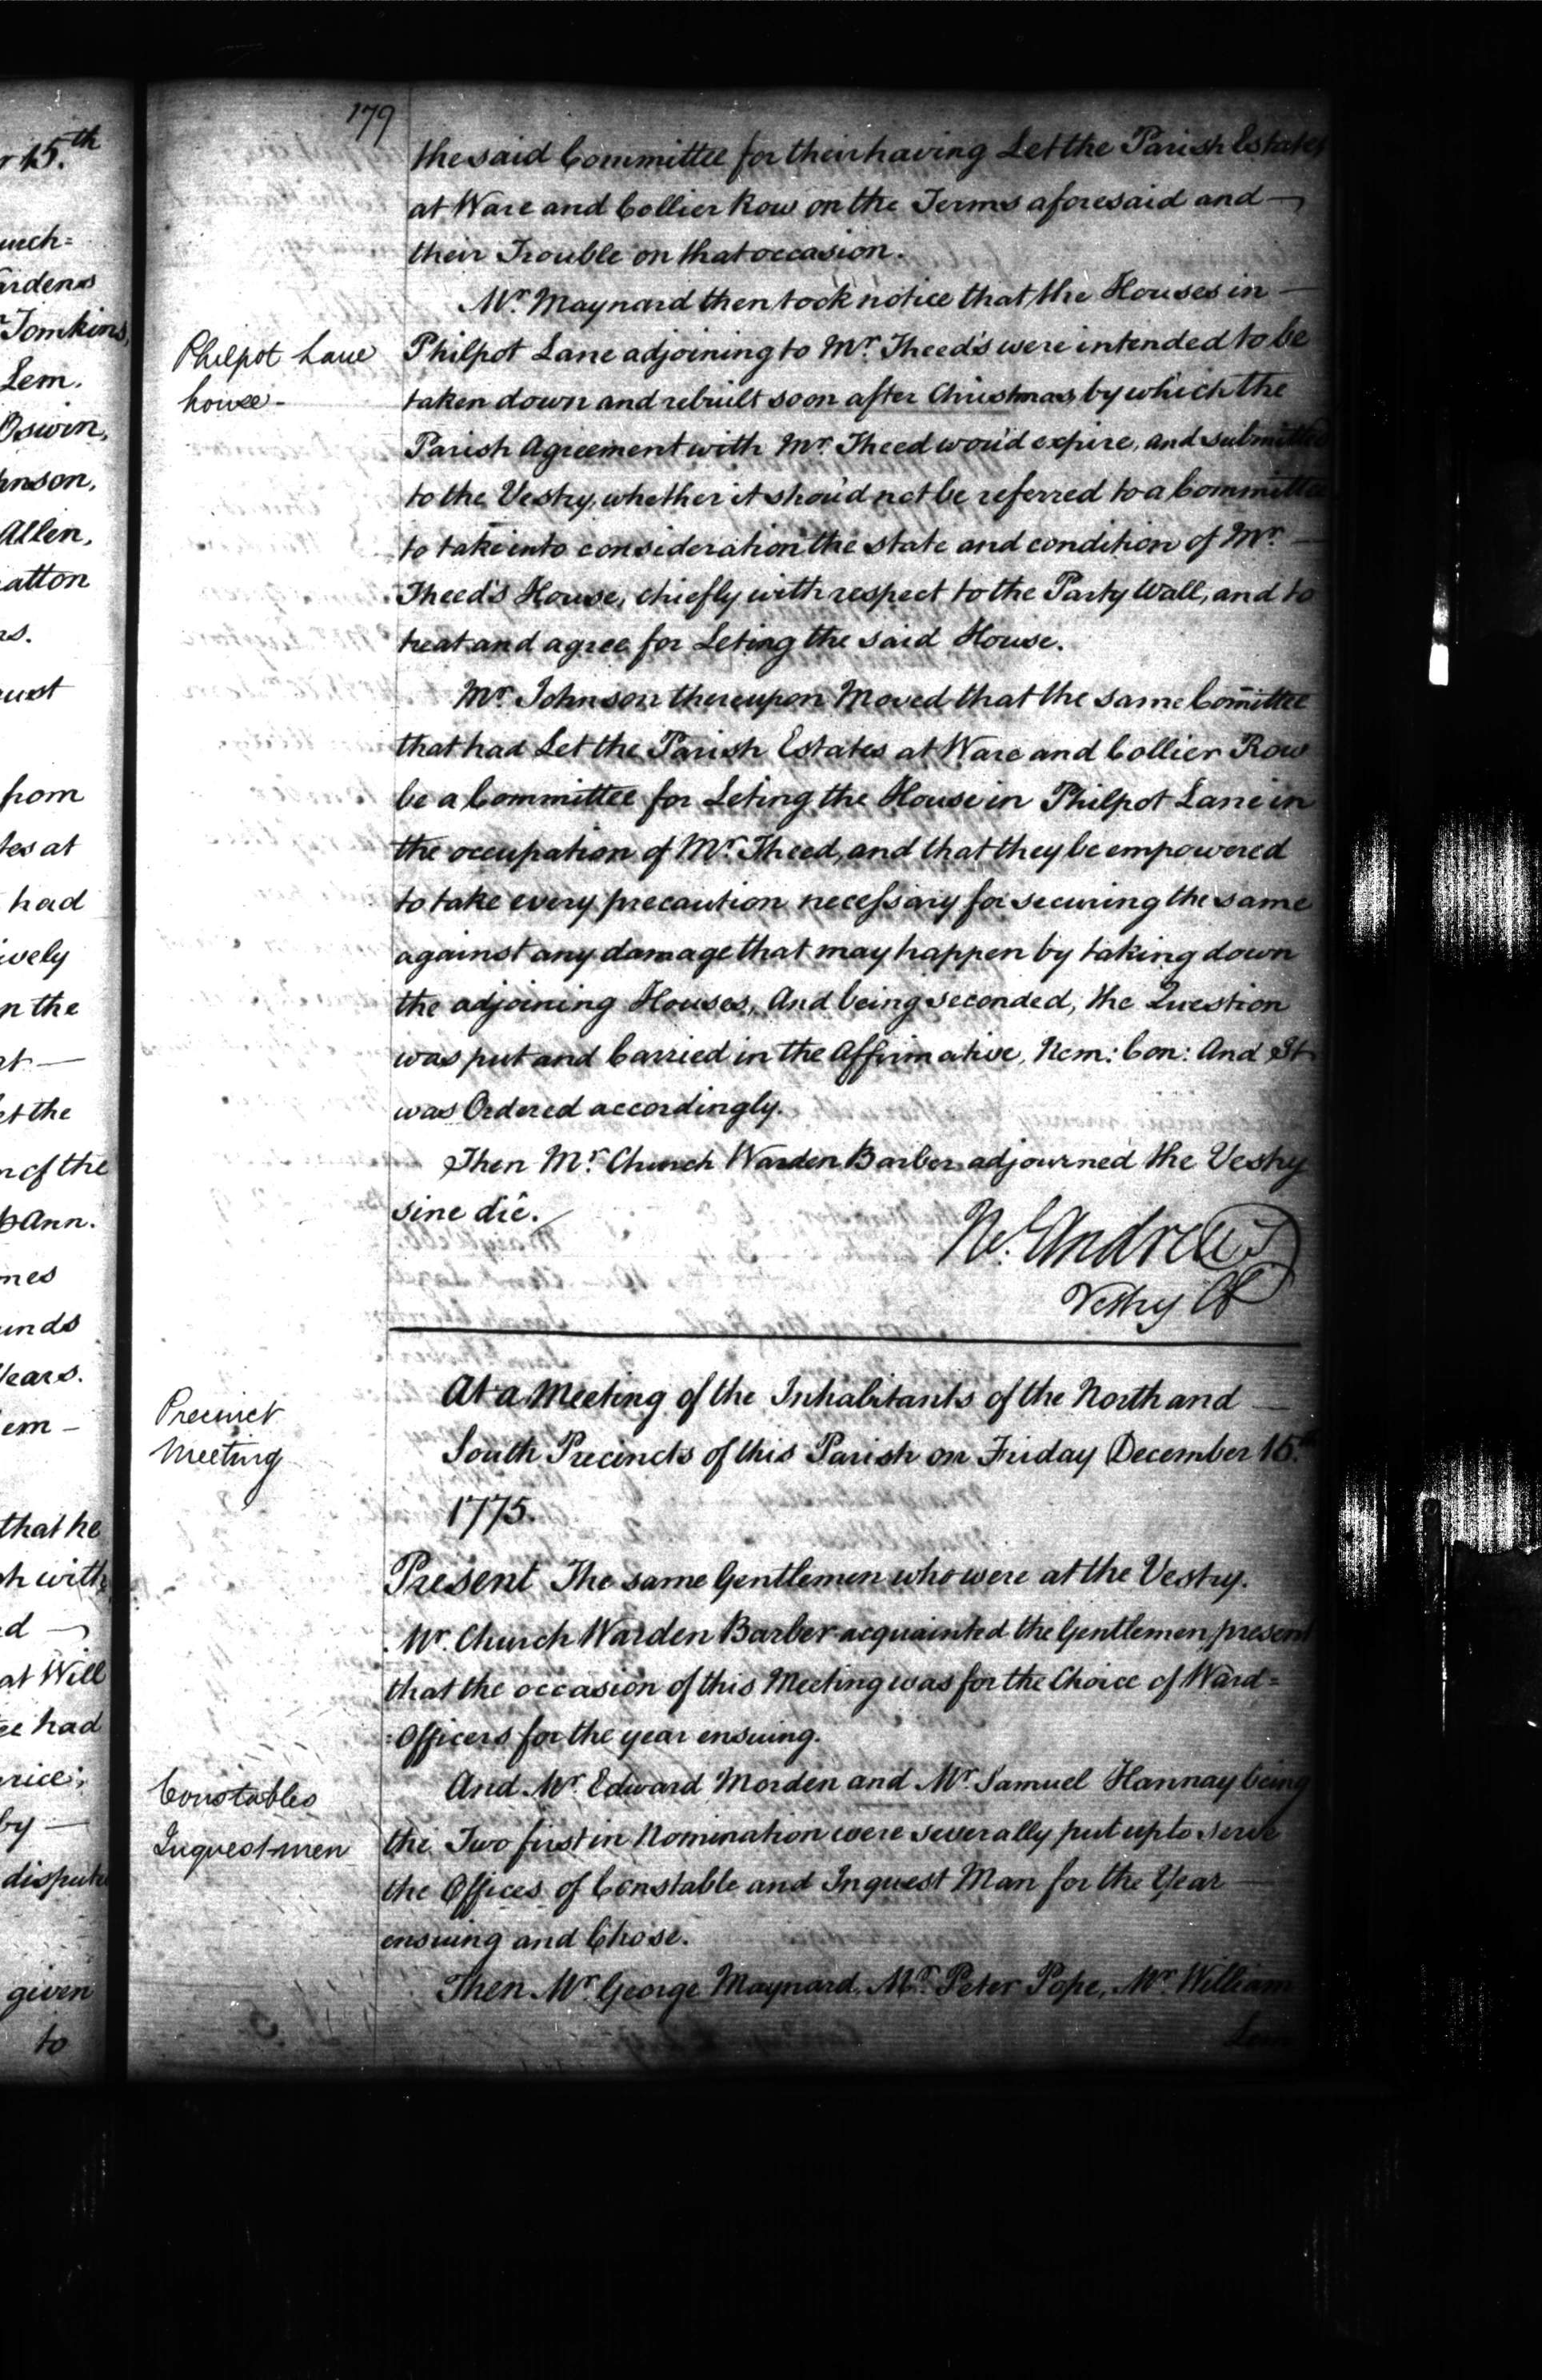 r 15.th
urch=
ardens
Tomkins,
Lem.
Oswin,
hnson,
Allen,
atton
rs.
ust
from
tes at
had
ively
n the
at —
et the
n of the
Ann.
mes
unds
Years.
em —
that he
h with
d —
at Will
ee had
rice;
by —
dispute
given
to
179
the said Committee for their having Let the Parish Estates
at Ware and Collier Row on the Terms aforesaid and —
their Trouble on that occasion.
Mr. Maynard then took notice that the Houses in —
Philpot Lane
house -
Philpot Lane adjoining to Mr. Theed's were intended to be
taken down and rebuilt soon after Christmas, by which the
Parish Agreement with Mr. Theed wou'd expire, and submitted
to the Vestry, whether it shou'd not be referred to a Committee
to take into consideration the state and condition of Mr. —
Theed's House, chiefly with respect to the Party Wall, and to
treat and agree for Leting the said House.
Mr. Johnson thereupon Moved that the same Com̄ittee
that had Let the Parish Estates at Ware and Collier Row
be a Committee for Leting the House in Philpot Lane in
the occupation of Mr. Theed, and that they be empowered
to take every precaution necessary for securing the same
against any damage that may happen by taking down
the adjoining Houses, And being seconded, the Question
was put and Carried in the Affirmative, Nem: Con: And It
was Ordered accordingly.
Then Mr. Church Warden Barber adjourned the Vestry
sine die.
Ne. Andrews
Vestry Cl
Precinct
Meeting
At a Meeting of the Inhabitants of the North and —
South Precincts of this Parish on Friday December 15.th
1775.
Present The same Gentlemen who were at the Vestry.
Mr. Church Warden Barber acquainted the Gentlemen present
that the occasion of this Meeting was for the Choice of Ward=
:Officers for the year ensuing.
Constables
Inquest-men
And Mr. Edward Morden and Mr. Samuel Hannay being
the Two first in Nomination were severally put up to serve
the Offices of Constable and Inquest Man for the Year —
ensuing and Chose.
Then Mr. George Maynard, Mr. Peter Pope, Mr. William
Lem